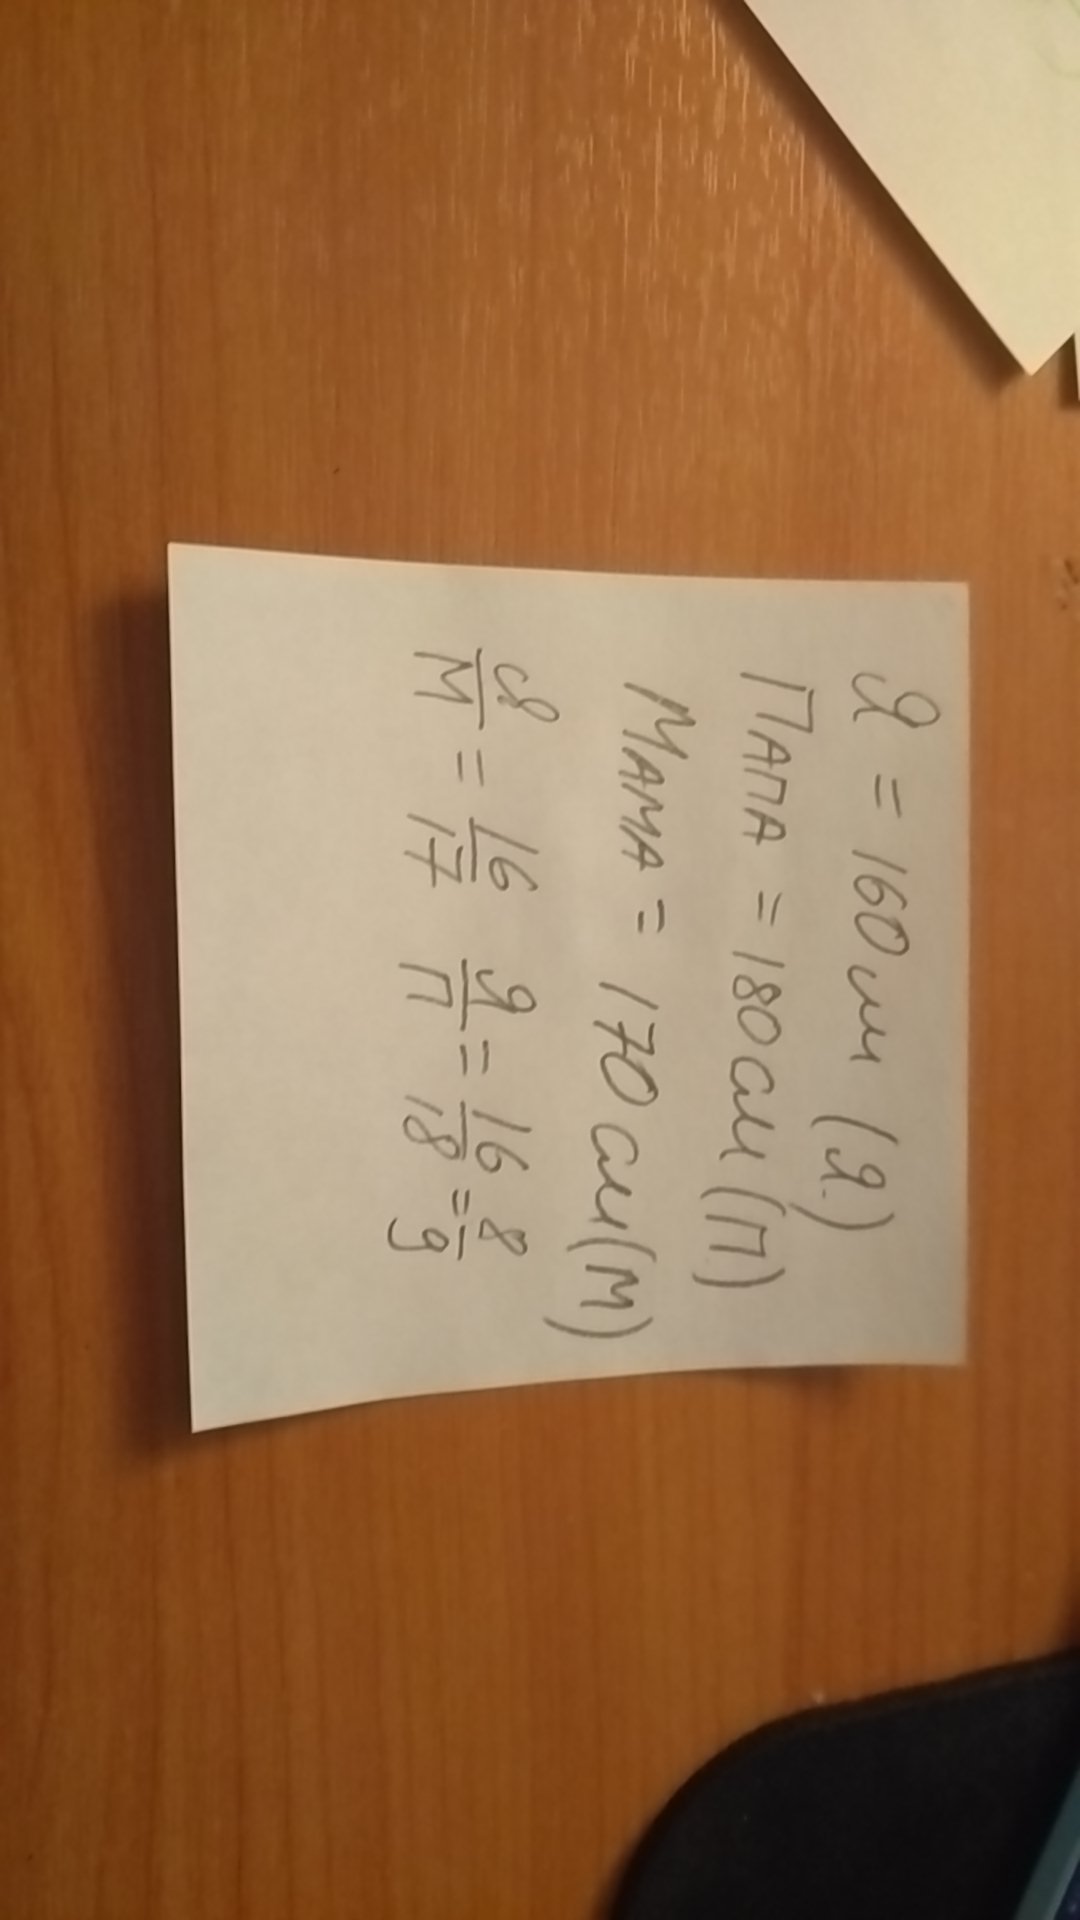 Я = 160 см (Я)
ПАПА = 180 см (П)
МАМА = 170 см (М)
Я/М = 16/17 Я/П = 16/18 = 8/9